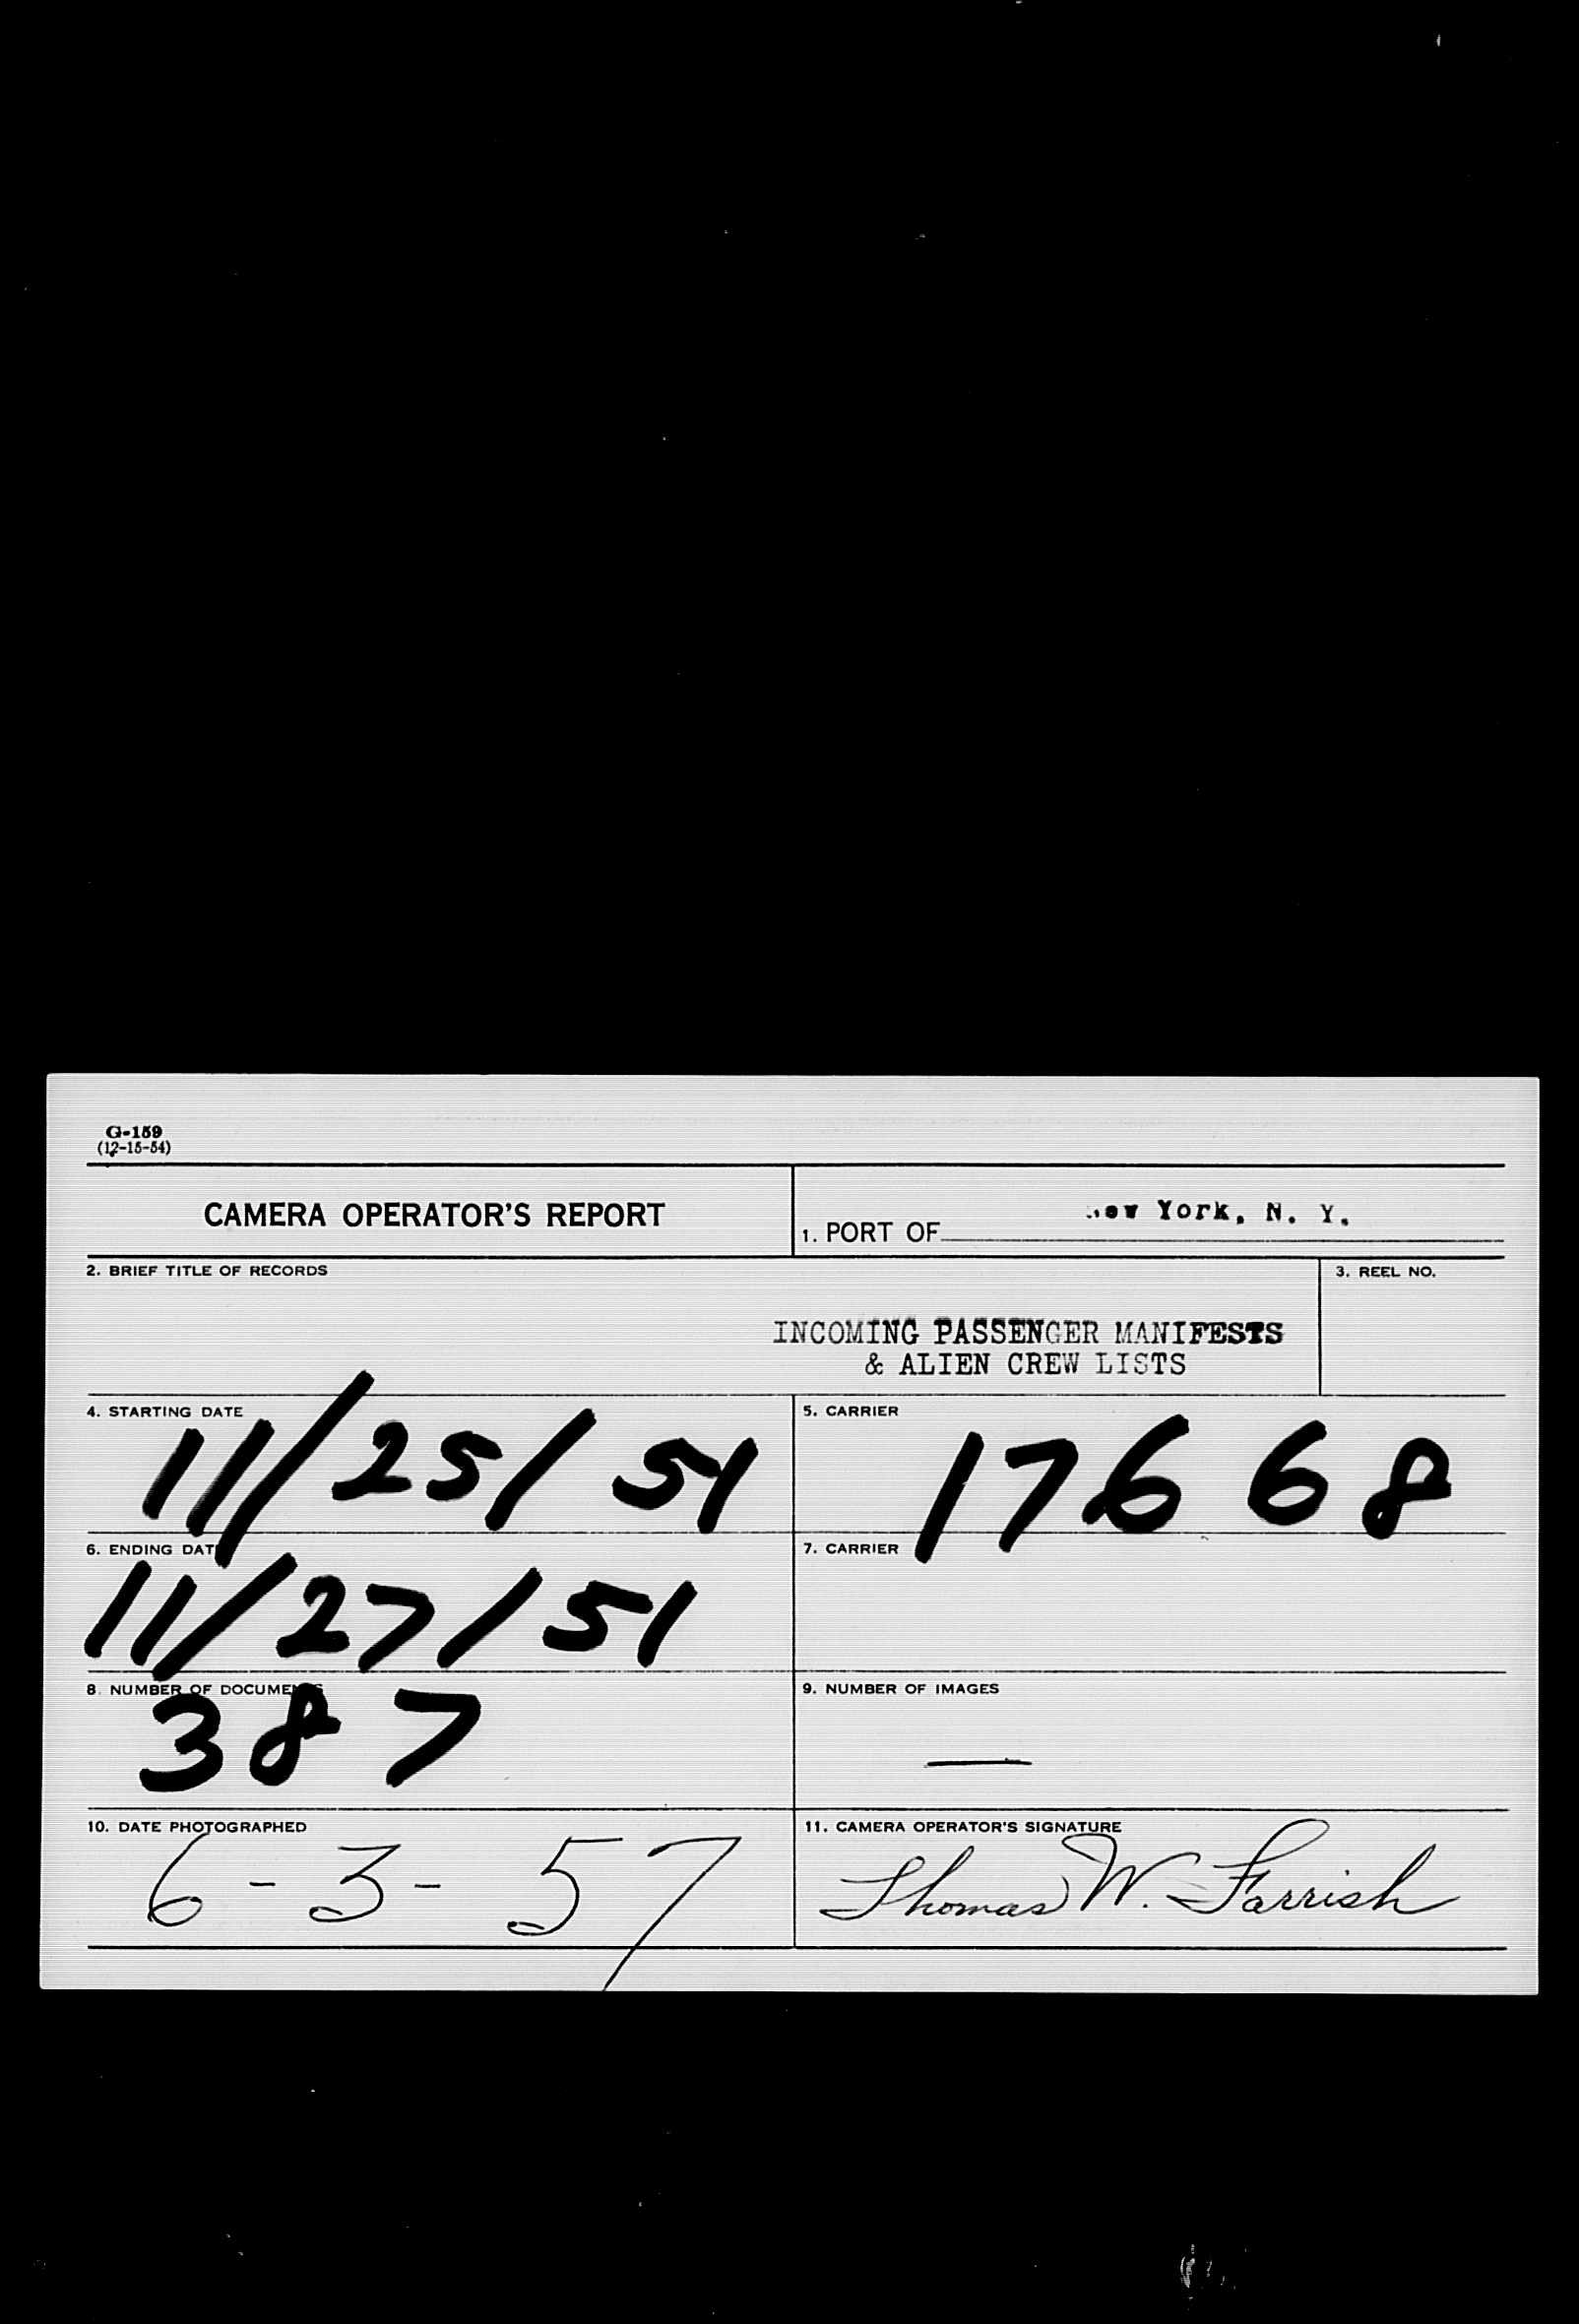 G-159
(12-15-54)
CAMERA OPERATOR'S REPORT
1. PORT OF New York, N. Y.
2. BRIEF TITLE OF RECORDS
INCOMING PASSENGER MANIFESTS
& ALIEN CREW LISTS
3. REEL NO.
4. STARTING DATE
11/25/51
5. CARRIER
17668
6. ENDING DATE
11/27/51
7. CARRIER
8. NUMBER OF DOCUMENTS
387
9. NUMBER OF IMAGES
—
10. DATE PHOTOGRAPHED
6-3-57
11. CAMERA OPERATOR'S SIGNATURE
Thomas W. Farrish